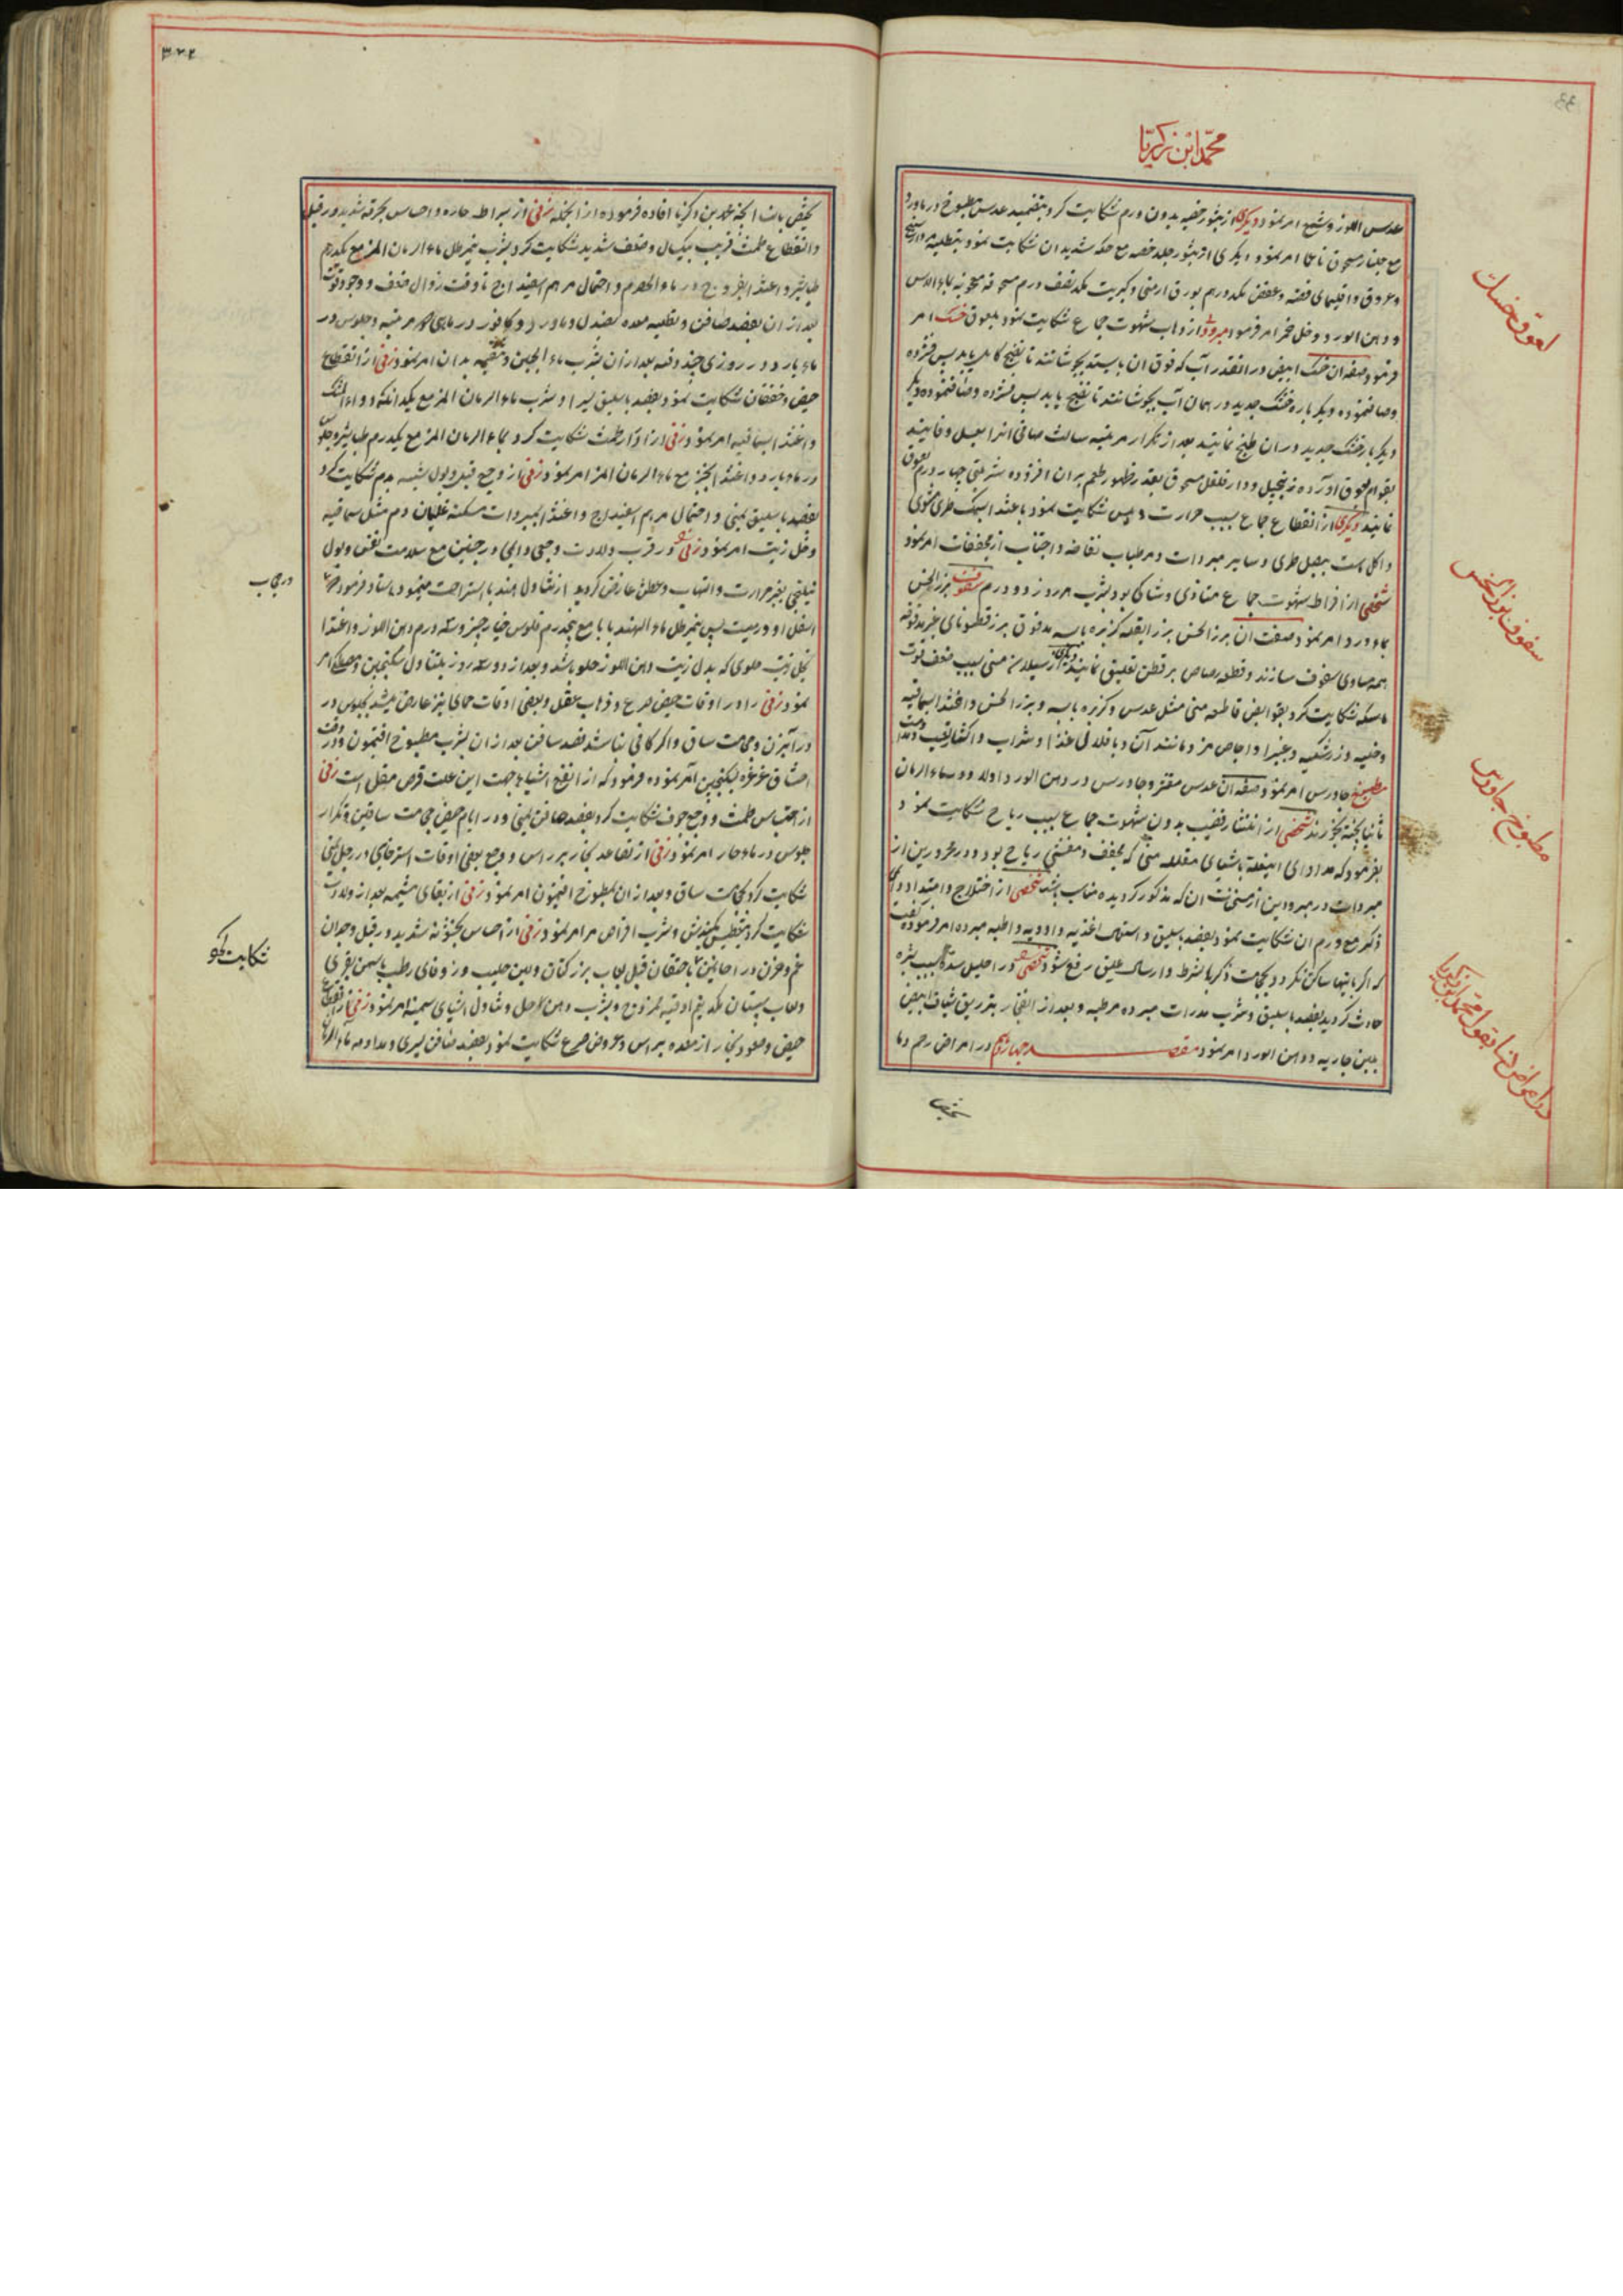 محمد ابن زکریا
عدس اللوز و شمع امر نمود دیگری از بثور خصیه بدون ورم شکایت کرد بتضمید عدس مطبوخ در ماورد
مع جلنار مسحوق ناعما امر نمود و دیگری از بثور جلد خصیه مع حکه شدید ان شکایت نمود بتطلیه مردارسنج
و عروق و اقلیمای فضه و عفص یکدرهم بورق ارمنی و کبریت یکدنصف درم مسحوقه معجونه بماء الاس
و دهن الورد و خل خمر امر فرمود مبرودی از ذهاب شهوت جماع شکایت نمود بلعوق خسک امر
فرمود صفة ان خسک ابیض در انقدر آب که فوق ان بایستد بجوشانند تا نضیج کامل یابد پس فشرده
وصاف نموده دیگر باره خسک جدید در همان آب بجوشانند تا نضج یابد پس فشرده وصاف نموده دیگر
دیگر بار خسک جدید در ان طبخ نمایند بعد از تکرار مرتبه سالث صافی انرا بعسل و فانیذ
بقوام لعوق آورده زنجبیل و دارفلفل مسحوق بقدر ظهور طعم بران افزوده شربتی چهار درم لعوق
نمایند دیگری از انقطاع جماع بسبب حرارت و یبس شکایت نمود باغتذا سمک طری مشوی
و اکل ماست ببصل طری و سایر مبردات و مرطبات نفاخه و اجتناب از مجففات امر نمود
شخصی از افراط شهوت جماع متاذی و شاکی بود بشرب هر روز دو درم سفوف بزر الخس
بماء ورد امر نمود صفت ان بزر الخس بزر البقله کزبره یابسه مدقوق بزر قطونای غیر مدقوقه
همه مساوی سفوف سازند و قطعه رصاص بر قطن تعلیق نمایند دیگری از سیلان منی بسبب ضعف قوت
ماسکه شکایت کرد بقوابض قاطعه منی مثل عدس و کزبره یابسه و بزر الخس و اغتذا بسماقیه
و خلیه و زرشکیه و غبیرا و اجاص مز و مانند آن و باقلالی غذا و شراب و اکثار تعب و مداومت
مطبوخ جاورس امر نمود صفة ان عدس مقشر و جاورس در دهن الورد اولا و در ماء الرمان
ثانیا پخته بخورند شخصی از انتشار قضیب بدون شهوت جماع بسبب ریاح شکایت نمود
بفرمود که مداوای اینعلة باشیای مقلله منی که مجفف و مفشی ریاح بود و در محرورین از
مبردات و در مبرودین از مسخنات ان که مذکور گردیده مناسب باشد شخصی از اختلاج و امتداد دوامی
ذکر مع ورم ان شکایت نمود بفصد باسلیق و استعمال اغذیه و ادویه و اطلیه مبرده امر فرموده گفت
که اگر باینها ساکن نگردد بحجامت ذکر با شرط و ارسال علیق رفع شود شخصی را در احلیل سده بسبب بثره
حادث گردید بفصد باسلیق و شرب مدرات مبرده مرطبه و بعد از انفجار بتزریق شیاف ابیض
بلبن جاریه و دهن الورد امر نمود مقصد چهاردهم در امراض رحم و ما
یختص
لعوق خسک
سفوف بزر الخس
مطبوخ جاورس
در امراض نسا بقول محمد ابن زکریا
یختص بان الخ محمد بن زکریا افاده فرموده از انجمله زنی از افراط حاره و احساس بحرقه شدید در قبل
و انقطاع طمث قریب بیکسال و ضعف شدید شکایت کرد بشرب نیم رطل ماء الرمان المز مع یکدرم
طباشیر و اغتذا بفروج در ماء الحصرم و احتمال مرهم اسفیداج تا وقت زوال ضعف و وجود قوت
بعد از ان بفصد صافن و تطلیه معده بصندل و ماورد و کافور در ماهی مرتبه و جلوس در
ماء بارد در روزی چند دفعه بعد از ان بشرب ماء الجبن و تنقیه بدان امر نمود زنی از انقطاع
حیض و خفقان شکایت نمود بفصد باسلیق یسرا و شرب ماء الرمان المز مع یکدانگ دواء المسک
و اغتذا بسماقیه امر نمود زنی از ادرار طمث شکایت کرد بماء الرمان المز مع یکدرم طباشیر و جلوس
در ماء بارد و اغتذا بخبز مع ماء الرمان المز امر نمود زنی از وجع قبل و بول شبیه بدم شکایت کرد
بفصد باسلیق یمنی و احتمال مرهم اسفیداج و اغتذا بمبردات مسکنه غلیان دم مثل سماقیه
و خل زیت امر نمود زنی را در قرب ولادت وجعی و المی در جنبین مع سلامت نفس و بول
اسفل او درمیت پس نیم رطل ماء الهندبا با مع پنجدرم فلوس خیارچنبر و سه درم دهن اللوز و اغتذا
بخل زیت حلوی که بدل زیت دهن اللوز حلو باشد و بعد از دو سه روز بتناول سکنجبین
نمود زنی را در اوقات حیض صرع و ذهاب عقل و بعضی اوقات حمای نیز عارض میشد بجلوس در
در آبزن و حجامت ساق و اگر کافی نباشد فصد صافن بعد از ان بشرب مطبوخ افتیمون و در وقت
اختناق غرغره بسکنجبین امر نموده فرمود که از انفع اشیا بجهت این علت قرص مقل است زنی
از احتباس طمث و وجع جوف شکایت کرد بفصد صافن یمنی و در ایام حیض حجامت ساقین و تکرار
جلوس در ماء حار امر نمود زنی از تصاعد بخار بر راس و وجع بعضی اوقات استرخای در رجل یمنی
شکایت کرد بحجامت ساق و بعد از ان بمطبوخ افتیمون امر نمود زنی از بقای مشیمه بعد از ولادت
شکایت کرد بتعطیس بکندش و شرب اقراص مر امر نمود زنی از احساس بخشونه شدید در قبل و وجدان
غم و حزن در احایین باحتقان قبل بلعاب بزر کتان و لبن حلیب و زوفای رطب بسمن بقری
حیض و صعود بخار از معده براس و عروض صرع شکایت نمود بفصد صافن یسری و مداومه ماء الرمان
در جانب
شکایت کرد